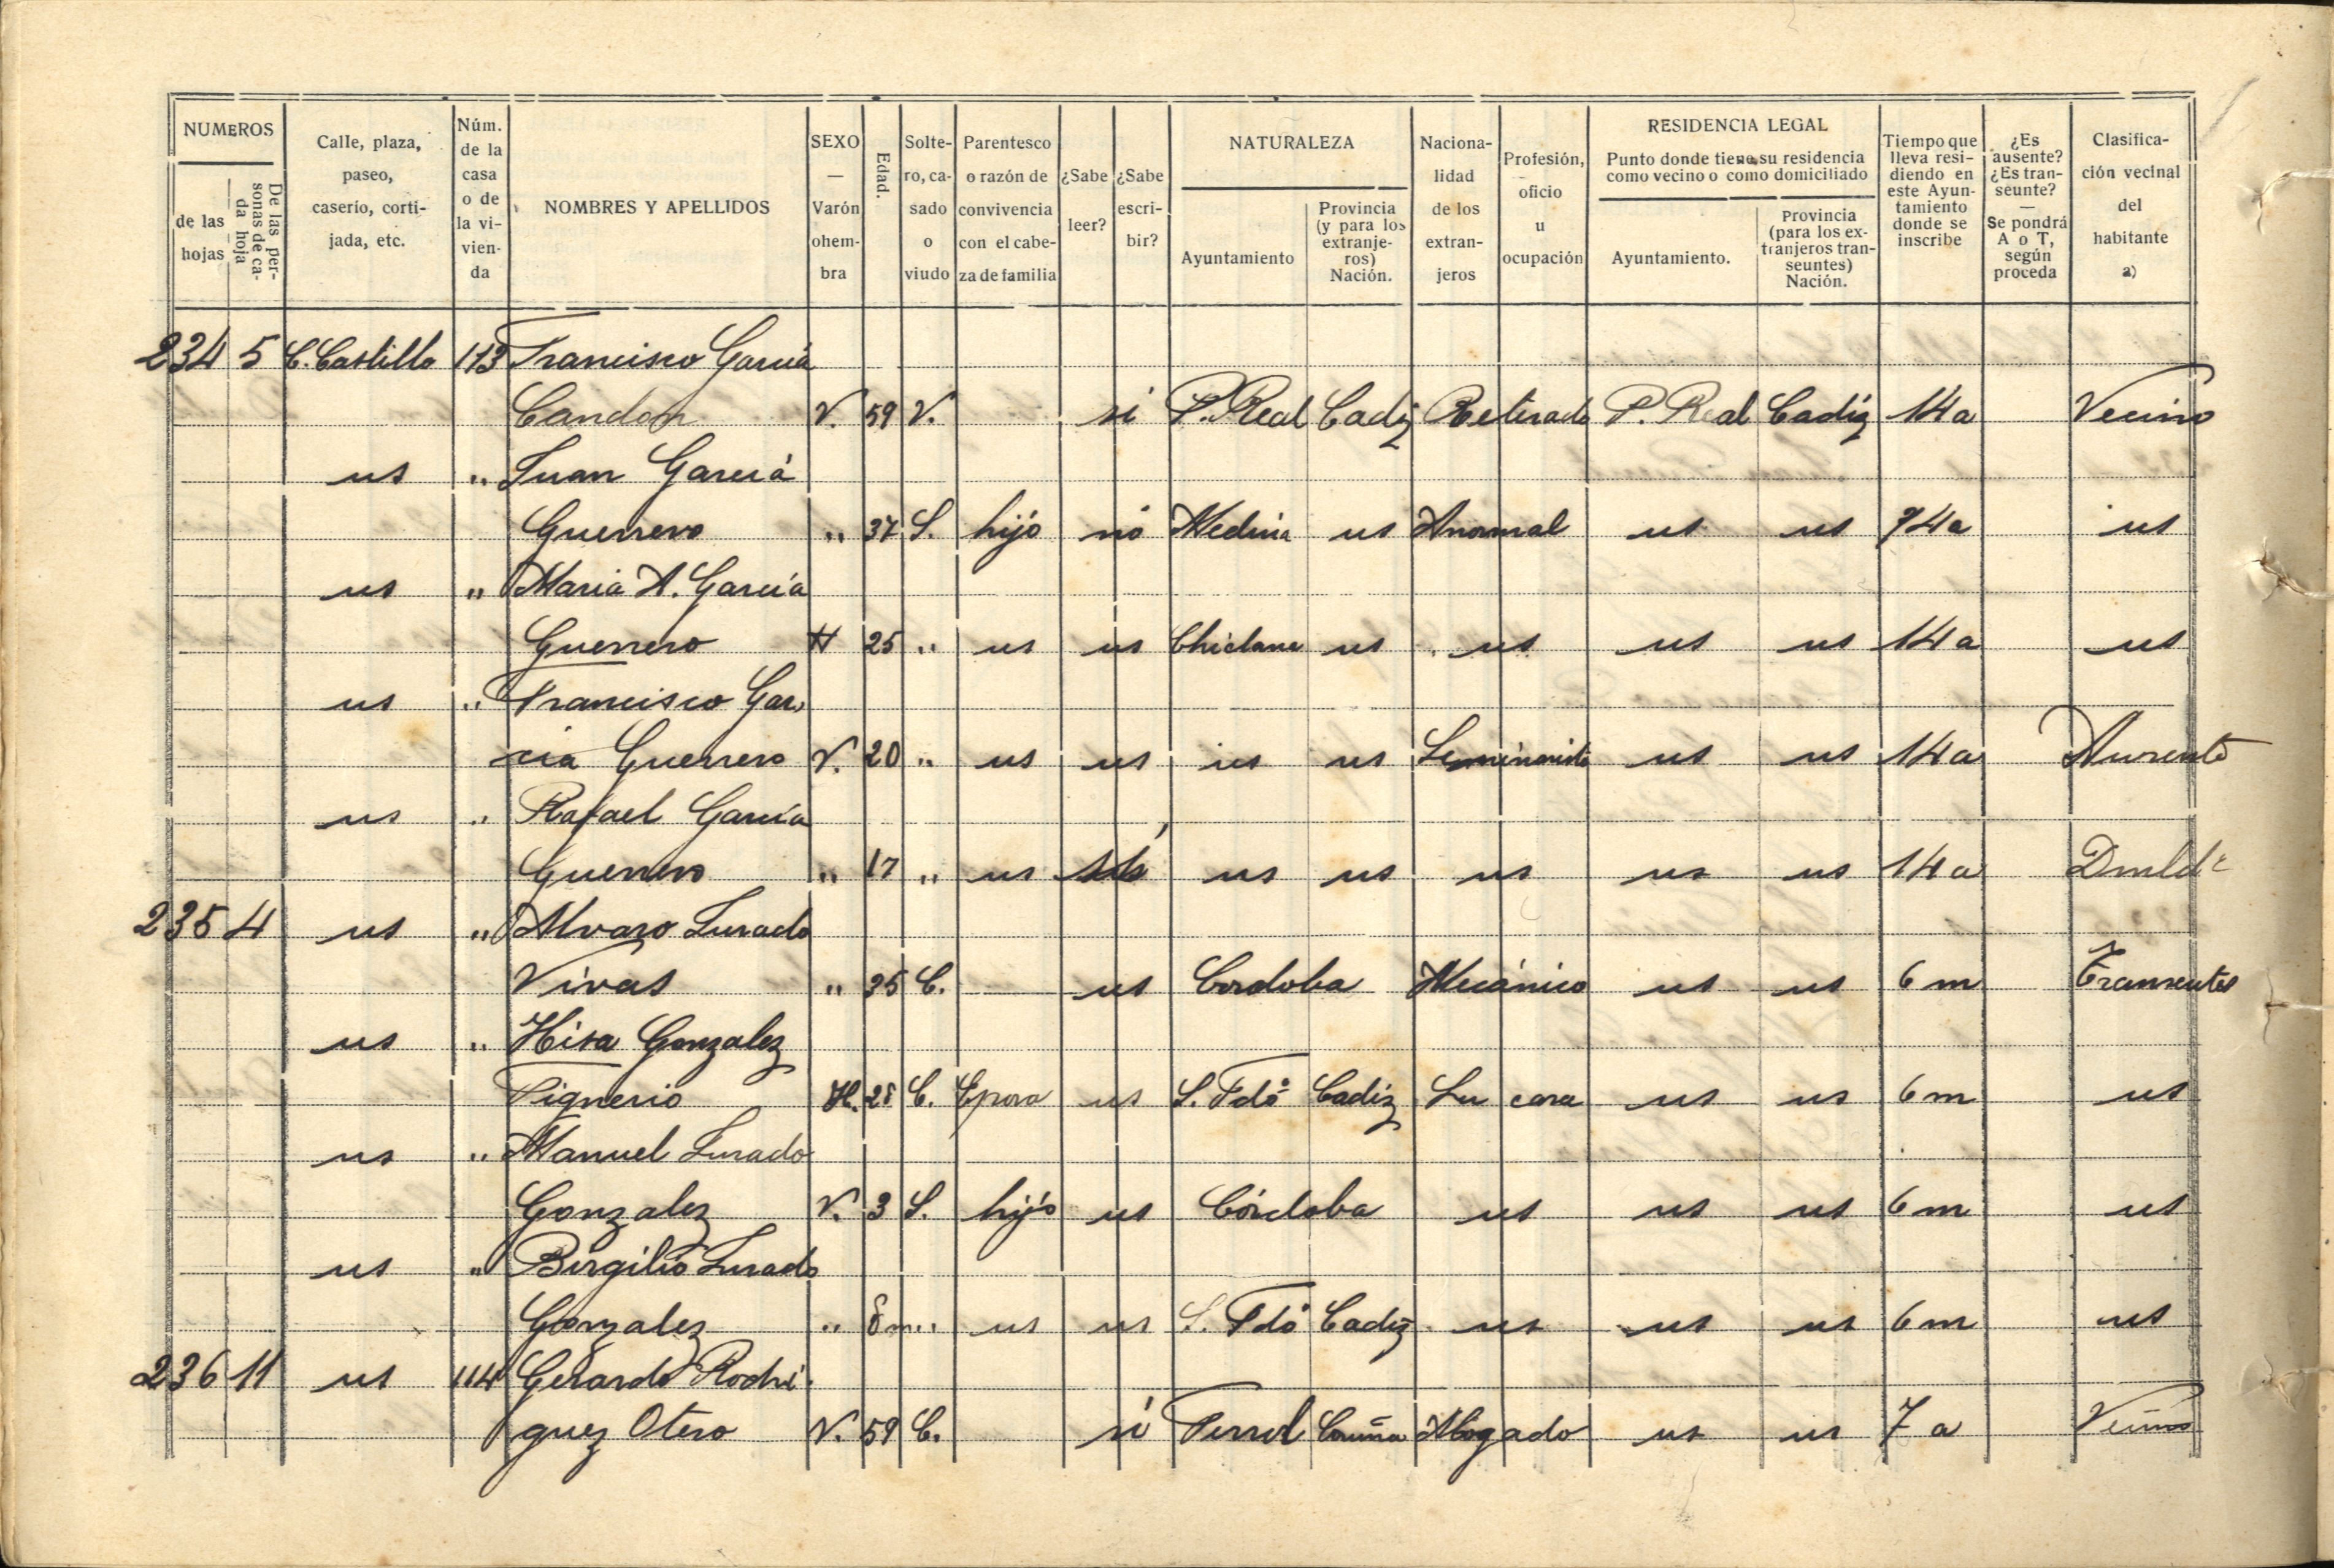 NUMEROS
de las hojas
De las personas de cada hoja
Calle, plaza, paseo, caserío, cortijada, etc.
Núm. de la casa o de la vivienda
NOMBRES Y APELLIDOS
SEXO — Varón ohembra
Edad.
Soltero, casado o viudo
Parentesco o razón de convivencia con el cabeza de familia
¿Sabe leer?
¿Sabe escribir?
NATURALEZA
Ayuntamiento
Provincia (y para los extranjeros) Nación.
Nacionalidad de los extranjeros
Profesión, oficio u ocupación
RESIDENCIA LEGAL
Punto donde tiene su residencia como vecino o como domiciliado
Ayuntamiento.
Provincia (para los extranjeros transeuntes) Nación.
Tiempo que lleva residiendo en este Ayuntamiento donde se inscribe
¿Es ausente? ¿Es transeunte? — Se pondrá A o T, según proceda
Clasificación vecinal del habitante a)
234 5 C. Castillo 113 Francisco García
Candon V. 59 V. si P. Real Cadiz Retirado P. Real Cadiz 14 a Vecino
us " Juan García
Guerrero " 37 S. hijo no Medina us Anormal us us 14 a us
us " Maria A. García
Guerrero H 25 " us us Chiclana us us us us 14 a us
us " Francisco Gar
cia Guerrero V. 20 " us us us us Seminarista us us 14 a Ausente
us " Rafael García
Guerrero " 17 " us si us us us us us 14 a Dmldº
235 4 us " Alvaro Jurado
Vivas " 35 C. us Cordoba Mecánico us us 6 m Transeuntes
us " Gonzalez
H. 28 C. Epora us S. Fdº Cadiz Su casa us us 6 m us
us " Manuel Jurado
Gonzalez V. 3 S. hijo us Córdoba us us us 6 m us
us " Birgilio Jurado
Gonzalez " 8 m " us us S. Fdº Cadiz us us us 6 m us
236 11 us 114 Gerardo Rodri
guez Otero V. 59 C. si Ferrol Coruña Abogado us us 7 a Vecino